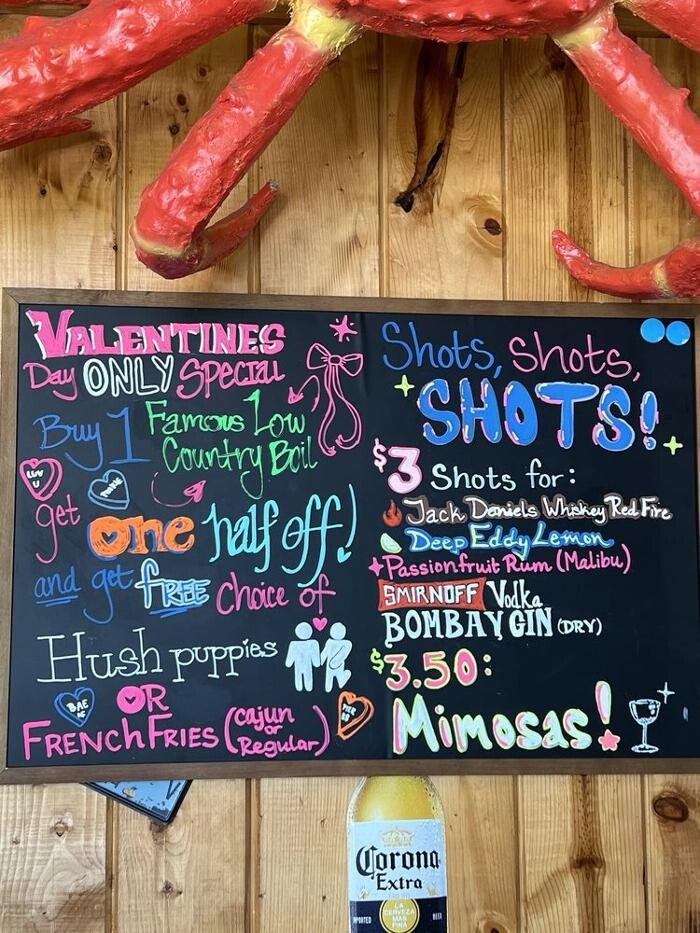 VALENTINES
Day ONLY Special
Buy 1 Famous Low
Country Boil
LUV U
get one half off!
and get FREE Choice of
Hush puppies
BAE AF
OR
FRENCH FRIES (Cajun
or
Regular)
Shots, Shots,
SHOTS!
$3 Shots for:
Jack Daniels Whiskey Red Fire
Deep Eddy Lemon
Passionfruit Rum (Malibu)
SMIRNOFF Vodka
BOMBAY GIN (DRY)
$3.50:
Mimosas!
Corona
Extra
IMPORTED
BEER
LA
CERVEZA
MAS
FINA